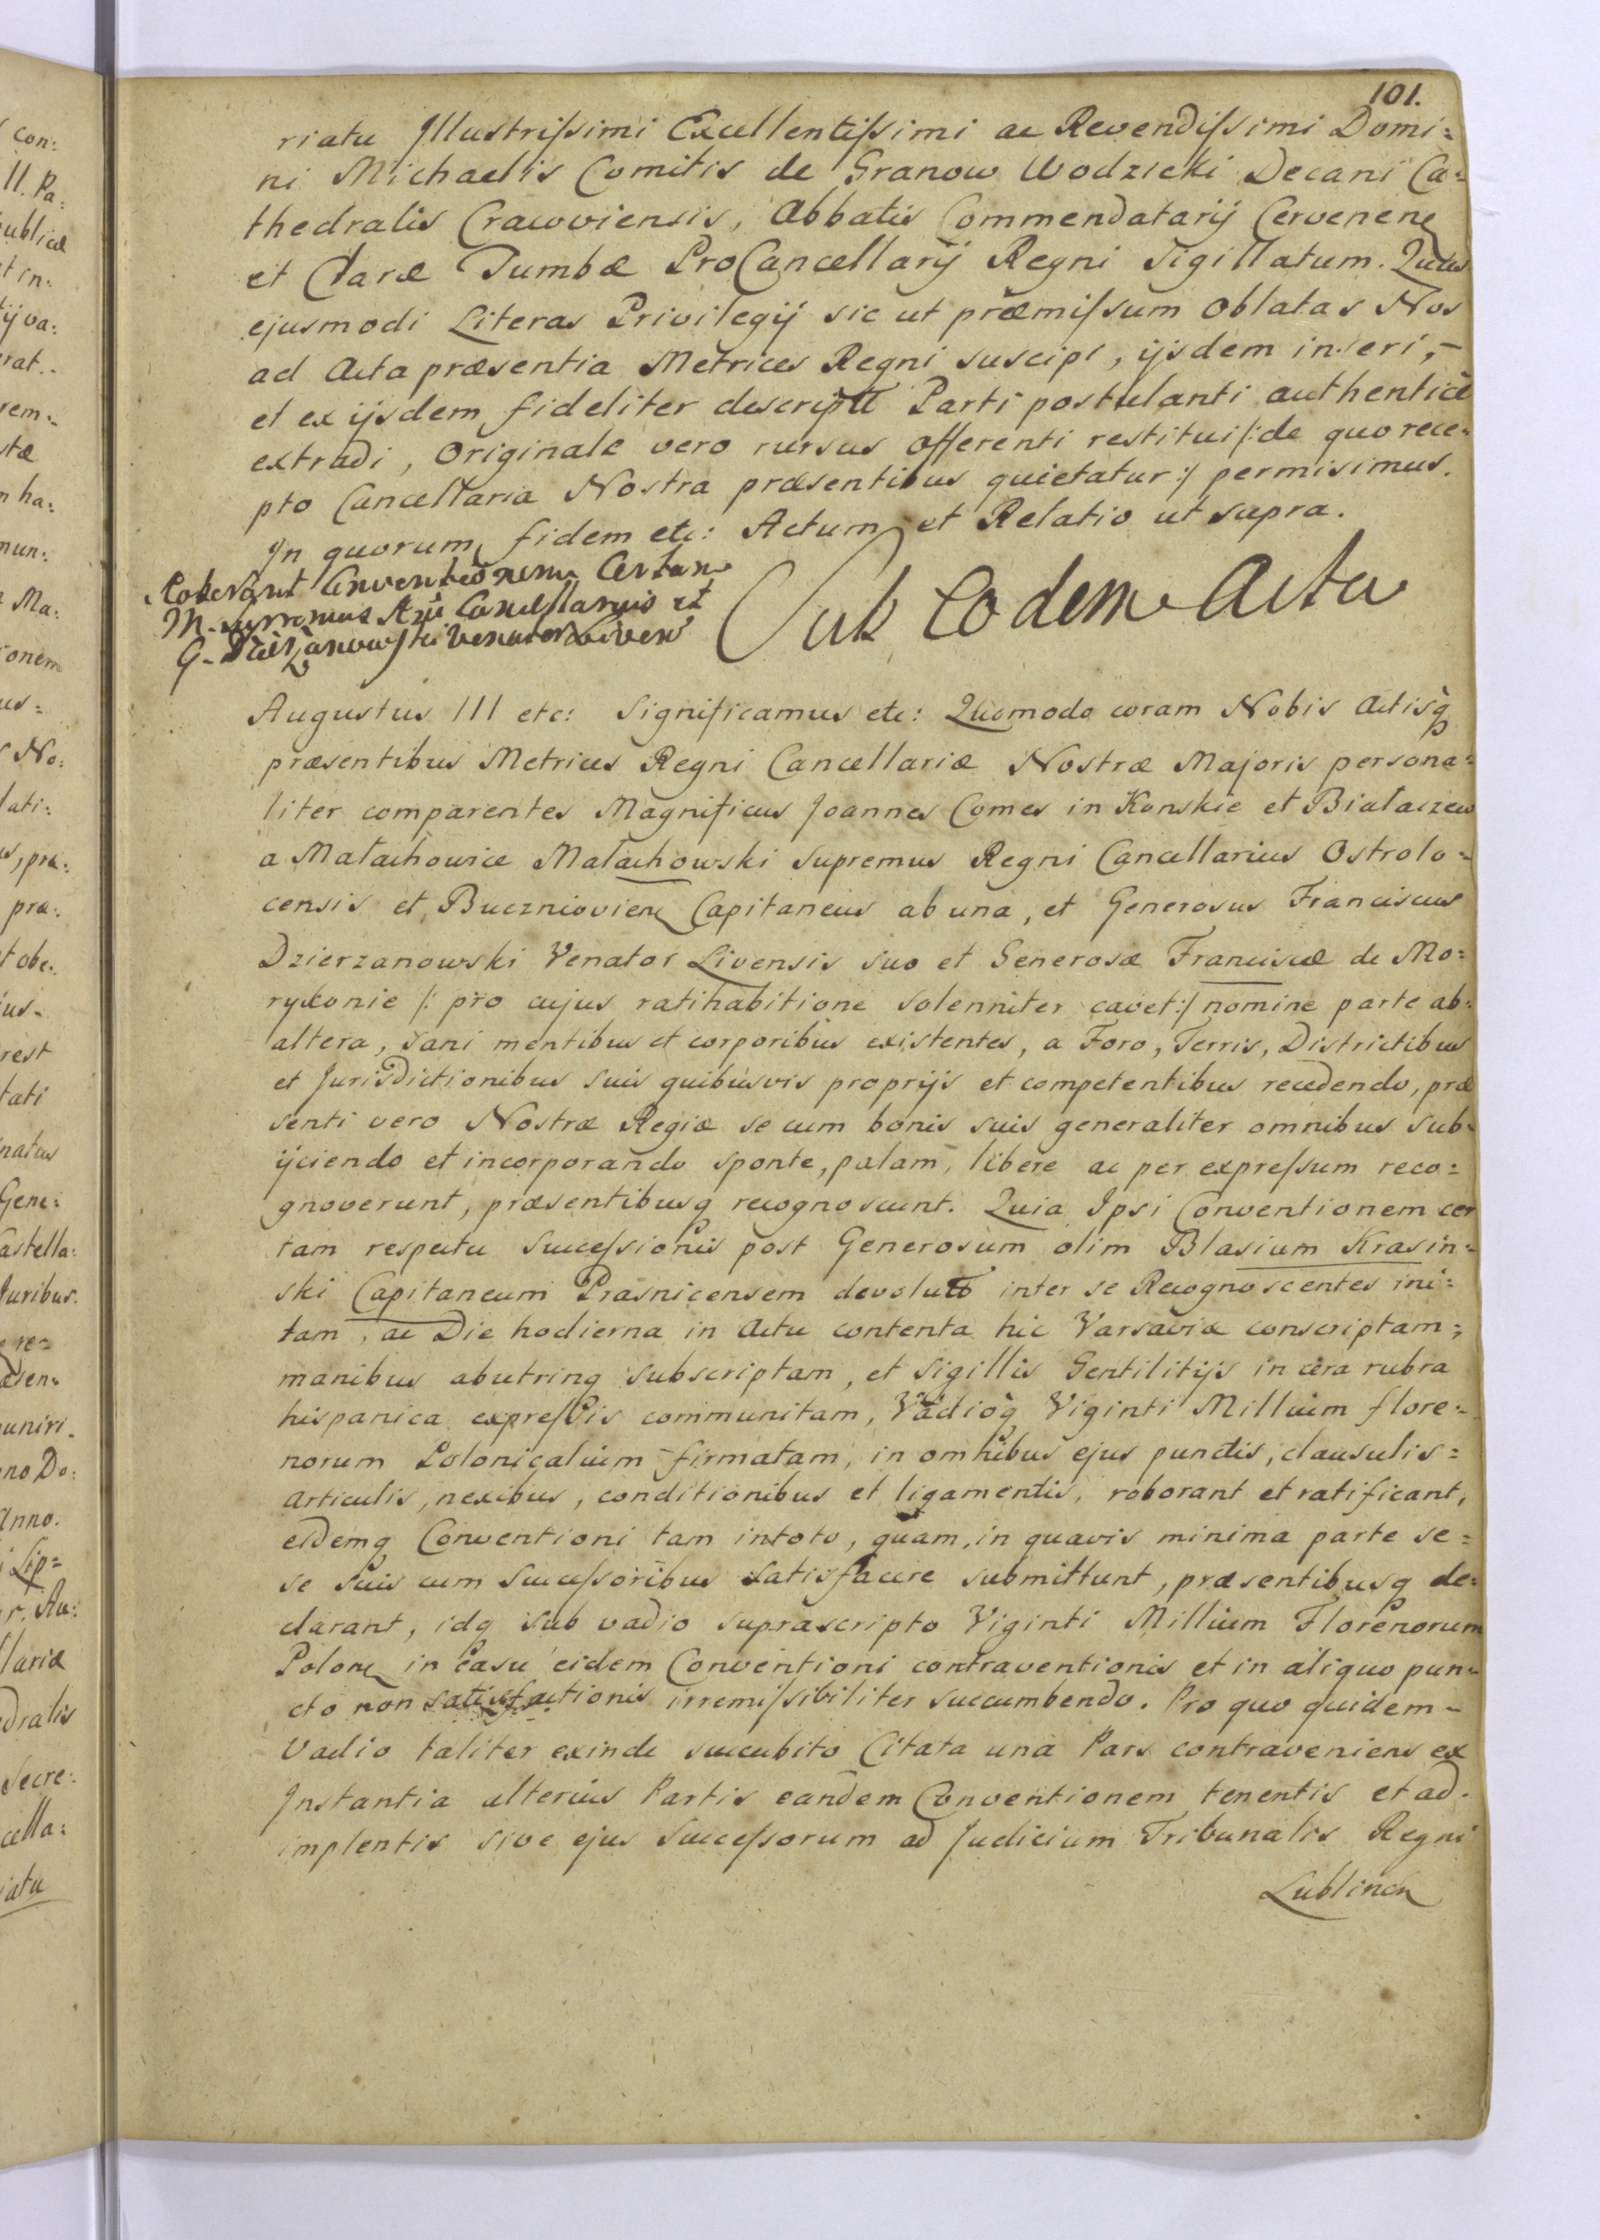 101.
riatu Illustrissimi Excellentissimi ac Revendissimi Domi=
ni Michaelis Comitis de Granow Wodzicki Decani Ca=
thedralis Cracoviensis, Abbatis Commendatarij Cervenen
et Claræ Tumbæ ProCancellarij Regni Sigillatum. Quas
ejusmodi Literas Privilegij sic ut præmissum oblatas Nos
ad Acta præsentia Metrices Regni suscipi, ijsdem inseri, -
et ex ijsdem fideliter descripti Parti postulanti authentice
extradi, Originale vero rursus Offerenti restitui /:de quo rece=
pto Cancellaria Nostra præsentibus quietatur:/ permisimus.
In quorum fidem etc: Actum et Relatio ut supra.
Roborant Conventionem Certam
M. Supremus Regni Cancellarius et
G. Dzierżanowski Venator Liven
Sub Eodem Actu
Augustus III etc: Significamus etc: Quomodo coram Nobis Actisq
præsentibus Metrices Regni Cancellariæ Nostræ Majoris persona=
liter comparentes Magnificus Joannes Comes in Konskie et Białaczew
a Małachowice Małachowski Supremus Regni Cancellarius Ostrolo=
censis et Buczniovien Capitaneus ab una, et Generosus Franciscus
Dzierzanowski Venator Livensis suo et Generosæ Franciscæ de Mo=
ryconie /: pro cujus ratihabitione solenniter cavet:/ nomine parte ab=
altera, sani mentibus et corporibus existentes, a Foro, Terris, Districtibus
et Jurisdictionibus suis quibusvis proprijs et competentibus recedendo, præ
senti vero Nostræ Regiæ se cum bonis suis generaliter omnibus sub=
ijciendo et incorporando sponte, palam, libere ac per expressum reco=
gnoverunt, præsentibusq recognoscunt. Quia Ipsi Conventionem cer
tam respectu Successionis post Generosum olim Blasium Krasin=
ski Capitaneum Prasnicensem devoluto inter se Recognoscentes ini=
tam, ac Die hodierna in Actu contenta hic Varsaviæ conscriptam,
manibus abutrinq subscriptam, et sigillis Gentilitijs in cera rubra
hispanica expressis communitam, Vadioq Viginti Millium flore=
norum Polonicalium firmatam, in omnibus ejus punctis, clausulis=
Articulis, nexibus, conditionibus et ligamentis, roborant et ratificant,
eidemq Conventioni tam in toto, quam in quavis minima parte se=
se suis cum Successoribus satisfacere submittunt, præsentibusq de=
clarant, idq sub vadio suprascripto Viginti Millium Florenorum
Polon in casu eidem Conventioni contraventionis et in aliquo pun=
cto non satisfactionis irremissibiliter succumbendo. Pro quo quidem=
Vadio taliter exinde succubito Citata una Pars contraveniens ex
Instantia alterius Partis eandem Conventionem tenentis et ad.
implentis sive ejus Successorum ad Judicium Tribunalis Regni
Lublinen